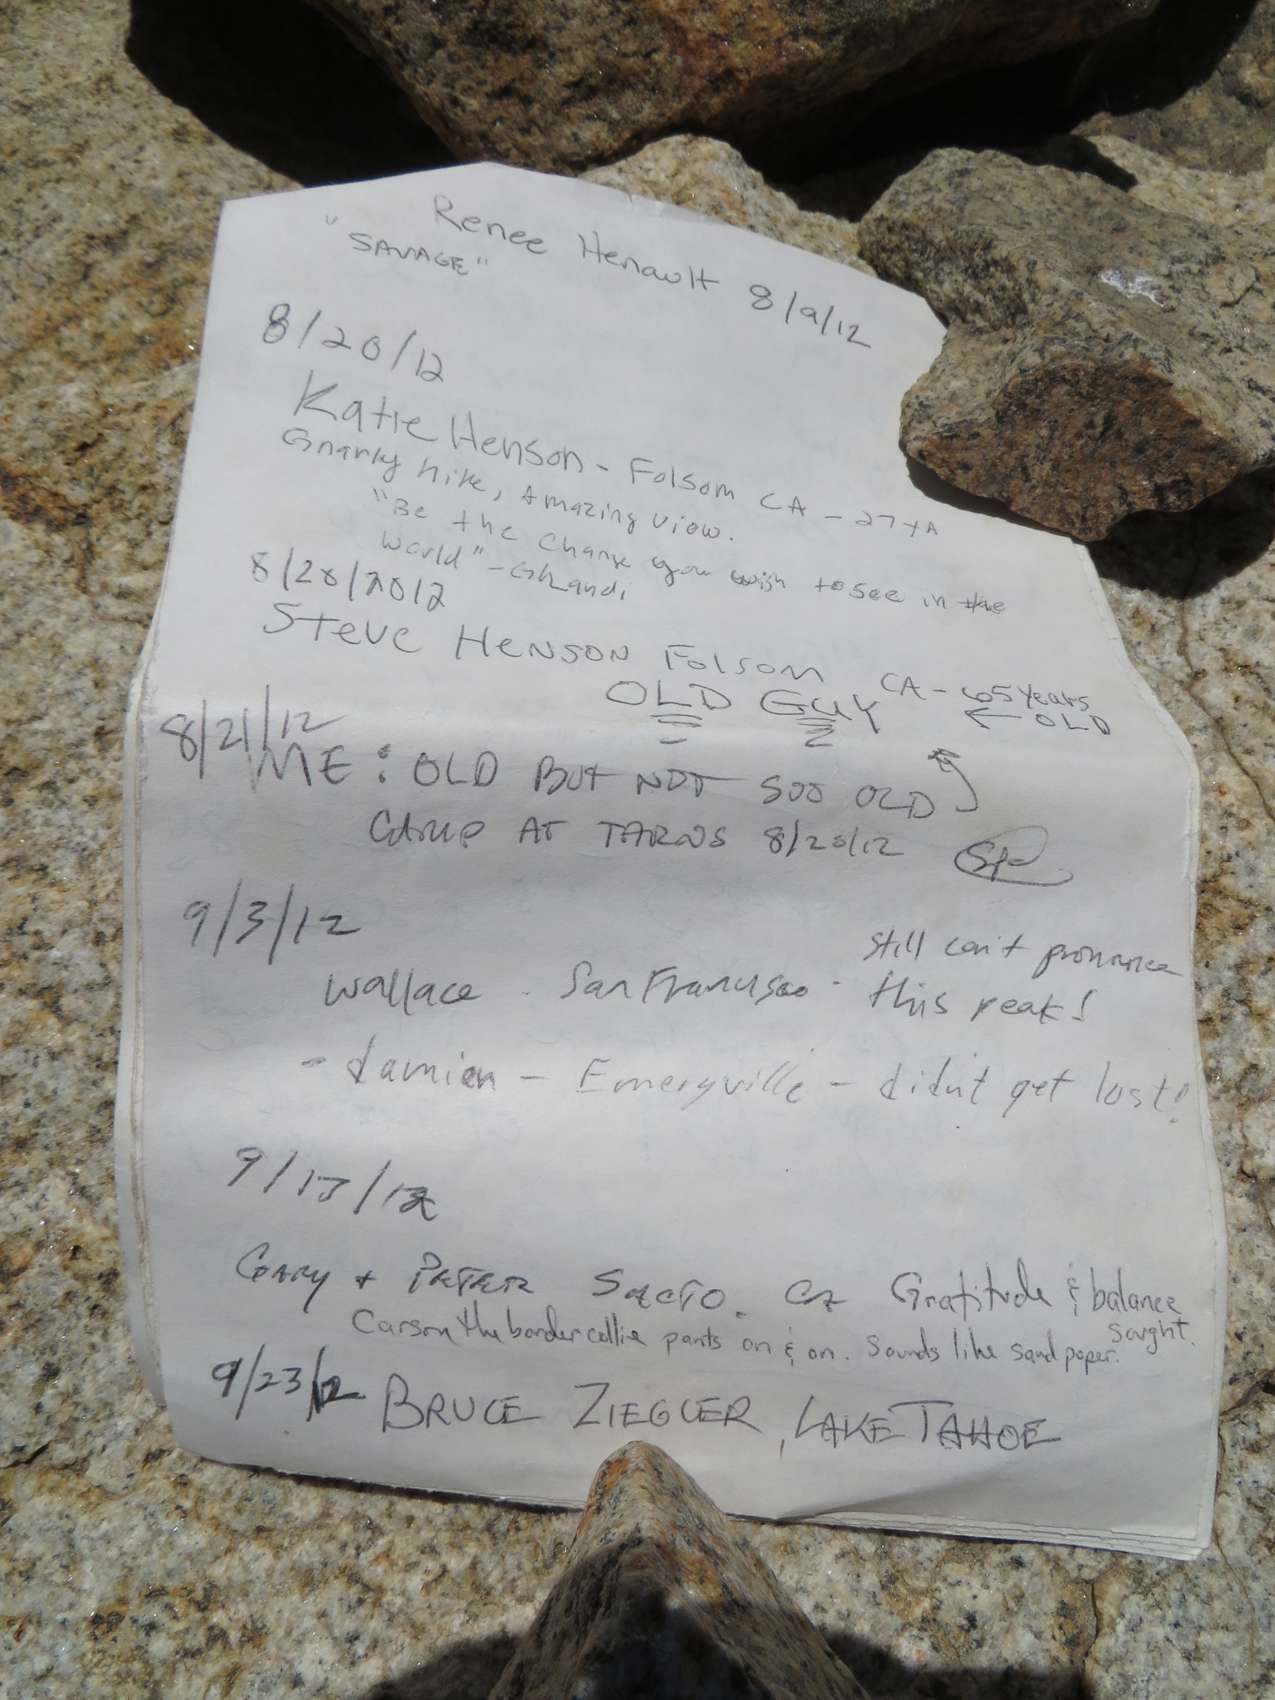 Renee Henault 8/9/12
"SAVAGE"
8/20/12
Katie Henson - Folsom CA - 27
Gnarly hike, Amazing view.
"Be the change you wish to see in the
world" - Ghandi
8/20/2012
Steve HENSON Folsom CA - 65 years
OLD GUY ← OLD
8/21/12
ME: OLD BUT NOT SOO OLD
CAMP AT TARNS 8/20/12
9/3/12
Wallace - San Francisco - still can't pronounce
this peak!
- damien - Emeryville - didn't get lost!
9/13/12
GARY + PETER SACTO. CA Gratitude & balance
sought.
Carson the border collie pants on & on. Sounds like sand paper.
9/23/12 BRUCE ZIEGLER, LAKE TAHOE